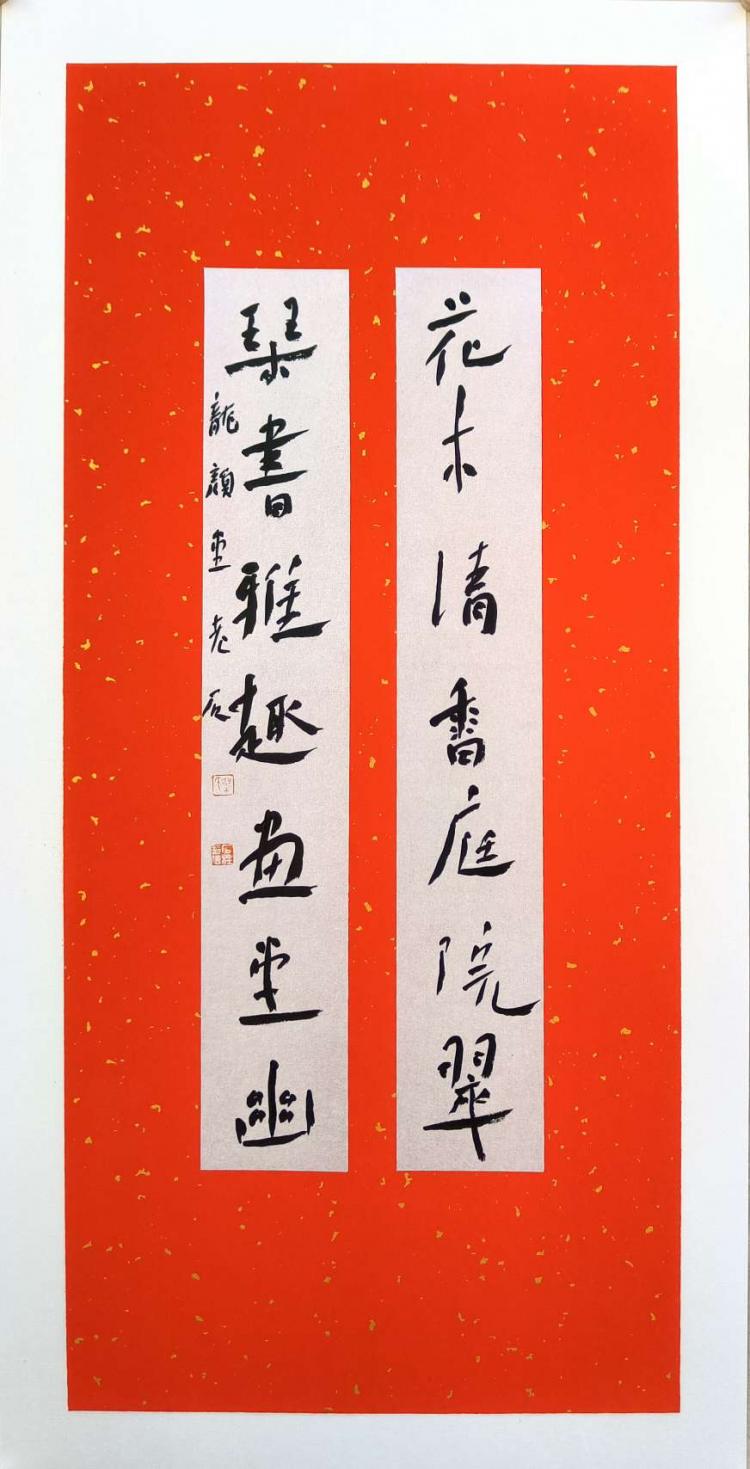 花木清香庭院翠
琴書雅趣画堂幽
龍顏堂老石